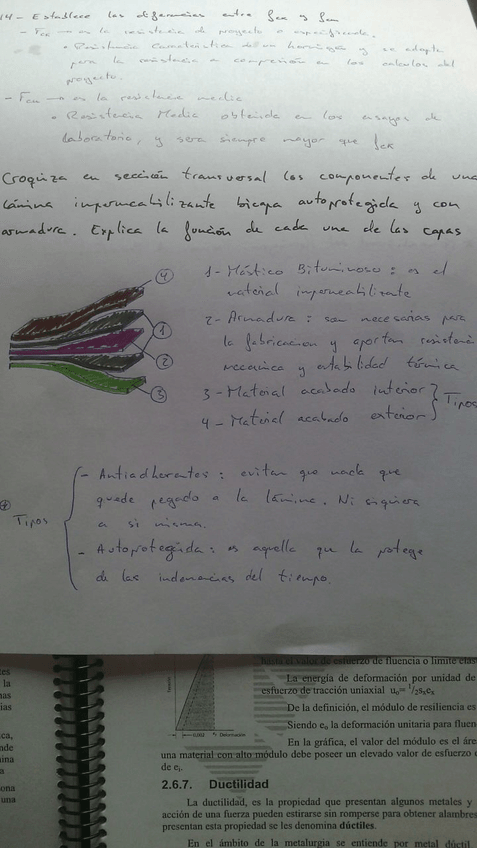 14- Establece las diferencias entre fck y fcm
- Fck → es la resistencia de proyecto o especificada.
• Resistencia Característica de un hormigón y se adopta
para la resistencia a compresión en los cálculos del
proyecto.
- Fcm → es la resistencia media
• Resistencia Media obtenida en los ensayos de
laboratorio, y sera siempre mayor que fck
Croquiza en sección transversal los componentes de una
lámina impermeabilizante bicapa autoprotegida y con
armadura. Explica la función de cada una de las capas
4
1
2
3
1- Mástico Bituminoso: es el
material impermeabilizante
2- Armadura: son necesarias para
la fabricacion y aportan resistencia
mecánica y estabilidad térmica
3- Material acabado interior
4- Material acabado exterior
Tipos
Tipos
- Antiadherentes: evitan que nada que
quede pegado a la lámina. Ni siquiera
a si misma.
- Autoprotegida: es aquella que la protege
de las indemencias del tiempo.
hasta el valor de esfuerzo de fluencia o límite elás
La energía de deformación por unidad de
esfuerzo de tracción uniaxial
De la definición, el módulo de resiliencia es
Siendo e₀ la deformación unitaria para fluen
En la gráfica, el valor del módulo es el áre
una material con alto módulo debe poseer un elevado valor de esfuerzo
de
0,002
Deformación
2.6.7. Ductilidad
La ductilidad, es la propiedad que presentan algunos metales y
acción de una fuerza pueden estirarse sin romperse para obtener alambres
presentan esta propiedad se les denomina dúctiles.
En el ámbito de la metalurgia se entiende por metal dúctil